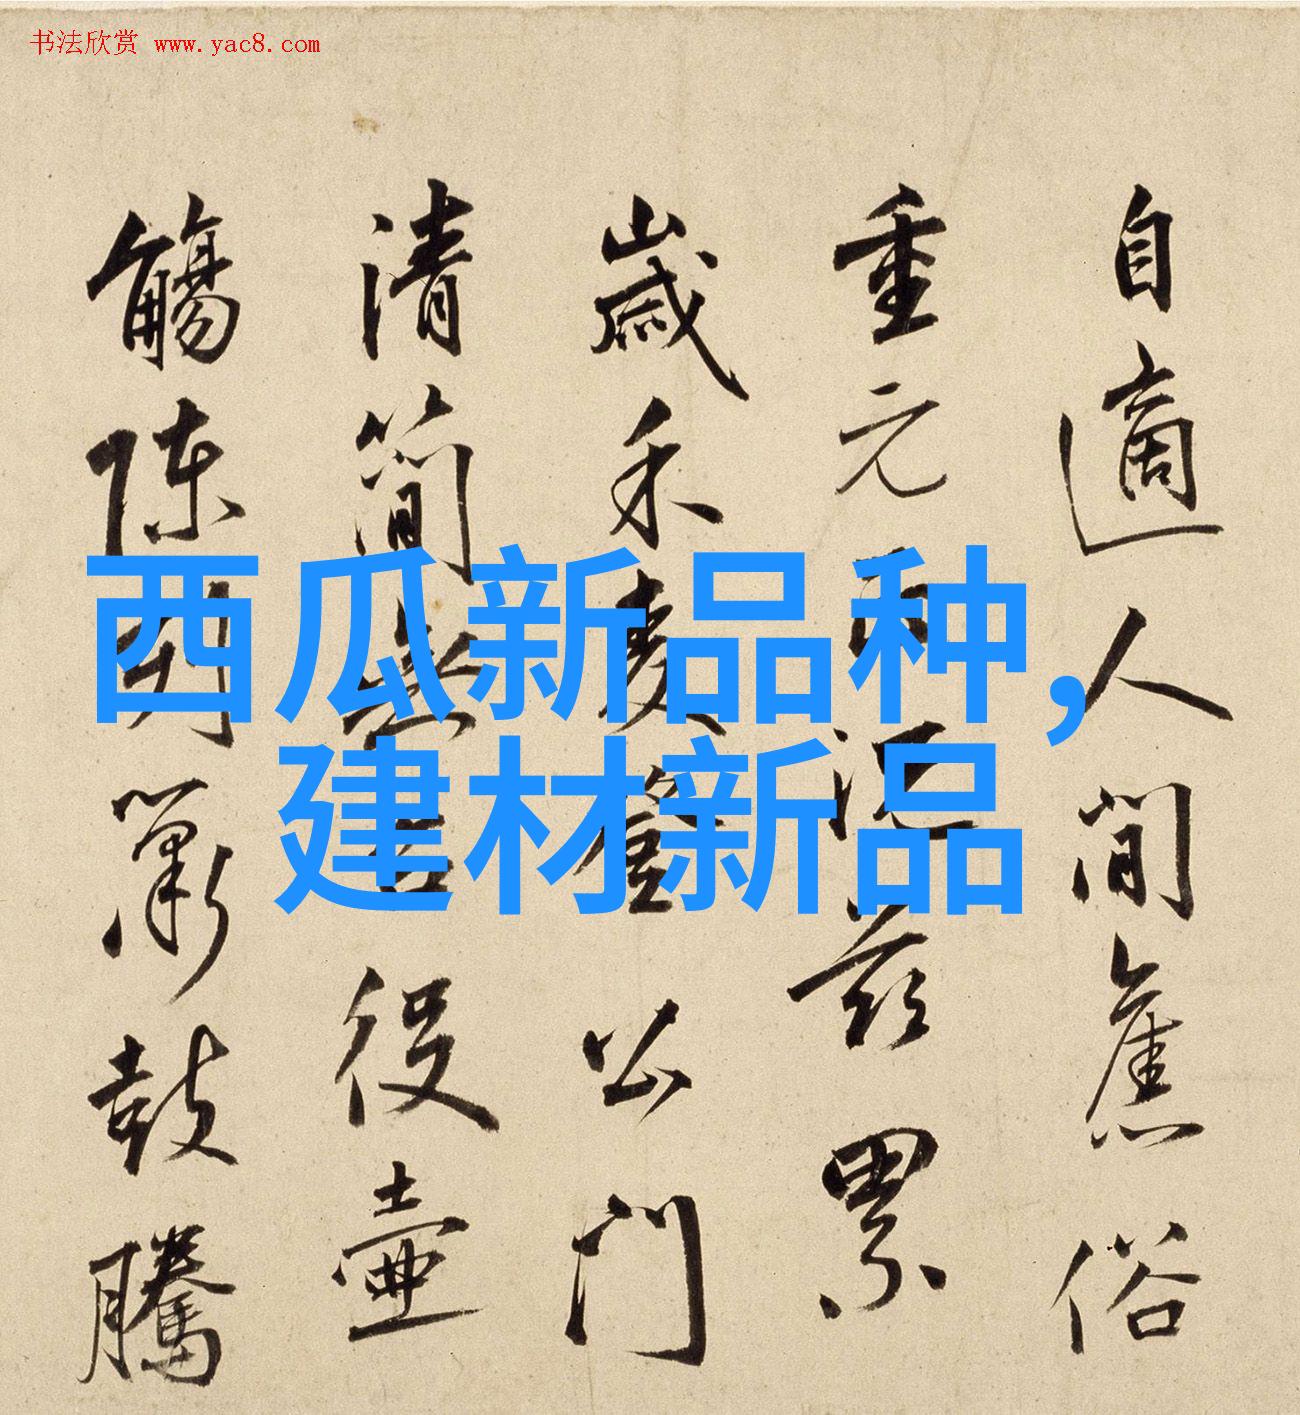 书法欣赏 www.yac8.com
自適人間舊俗
重元
況茲累
歲禾麦登公門
清簡無
役壺
觴陳列簫鼓騰
西瓜新品种，
建材新品